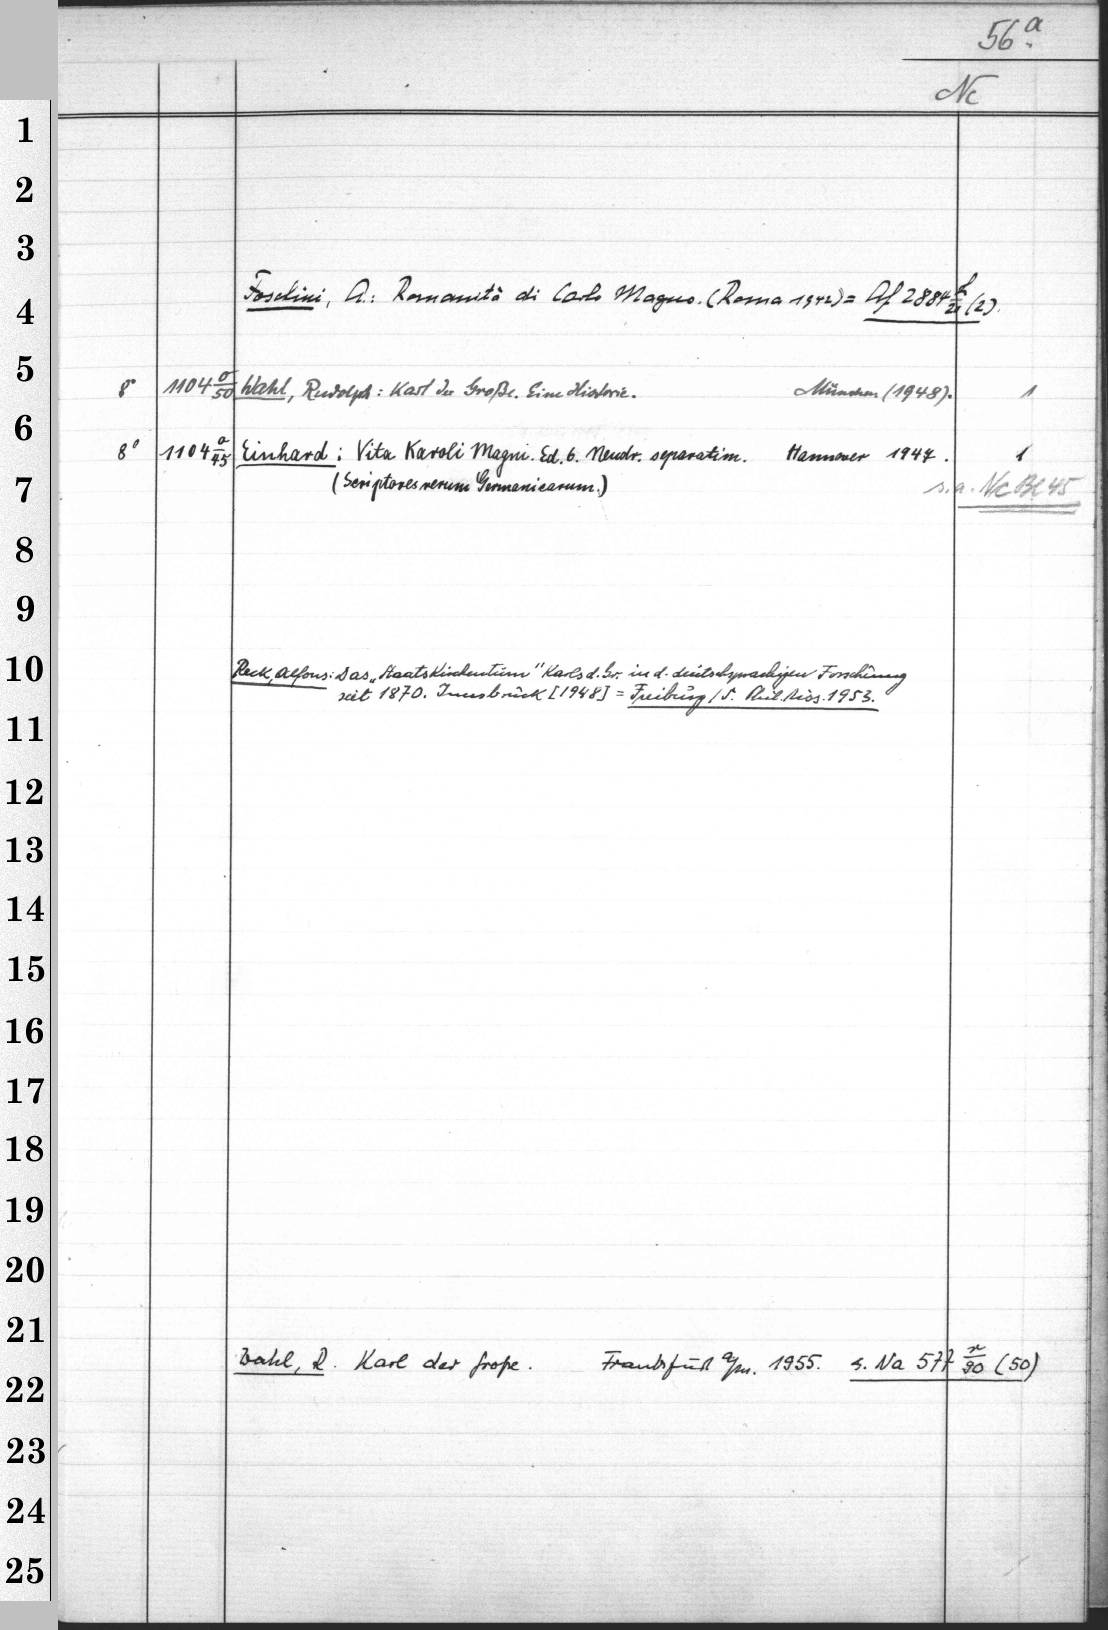 56ª
Nc
1
2
3
4 Foschini, A.: Romanità di Carlo Magno. (Roma 1942) = Af 2884 (2).
5
8° 1104 a/50 Wahl, Rudolph: Karl der Große. Eine Historie. München (1948). 1
6
8° 1104 a/45 Einhard: Vita Karoli Magni. Ed. 6. Neudr. separatim. Hannover 1947. 1
7 (Scriptores rerum Germanicarum.) s. a. Nc Bl 45
8
9
10 Reck, Alfons: Das „Staatskirchentum" Karls d. Gr. in d. deutschsprachigen Forschung
seit 1870. Innsbruck [1948] = Freiburg/S. Phil. Diss. 1953.
11
12
13
14
15
16
17
18
19
20
21
Wahl, R. Karl der Große. Frankfurt a/M. 1955. s. Na 577 n/90 (50)
22
23
24
25